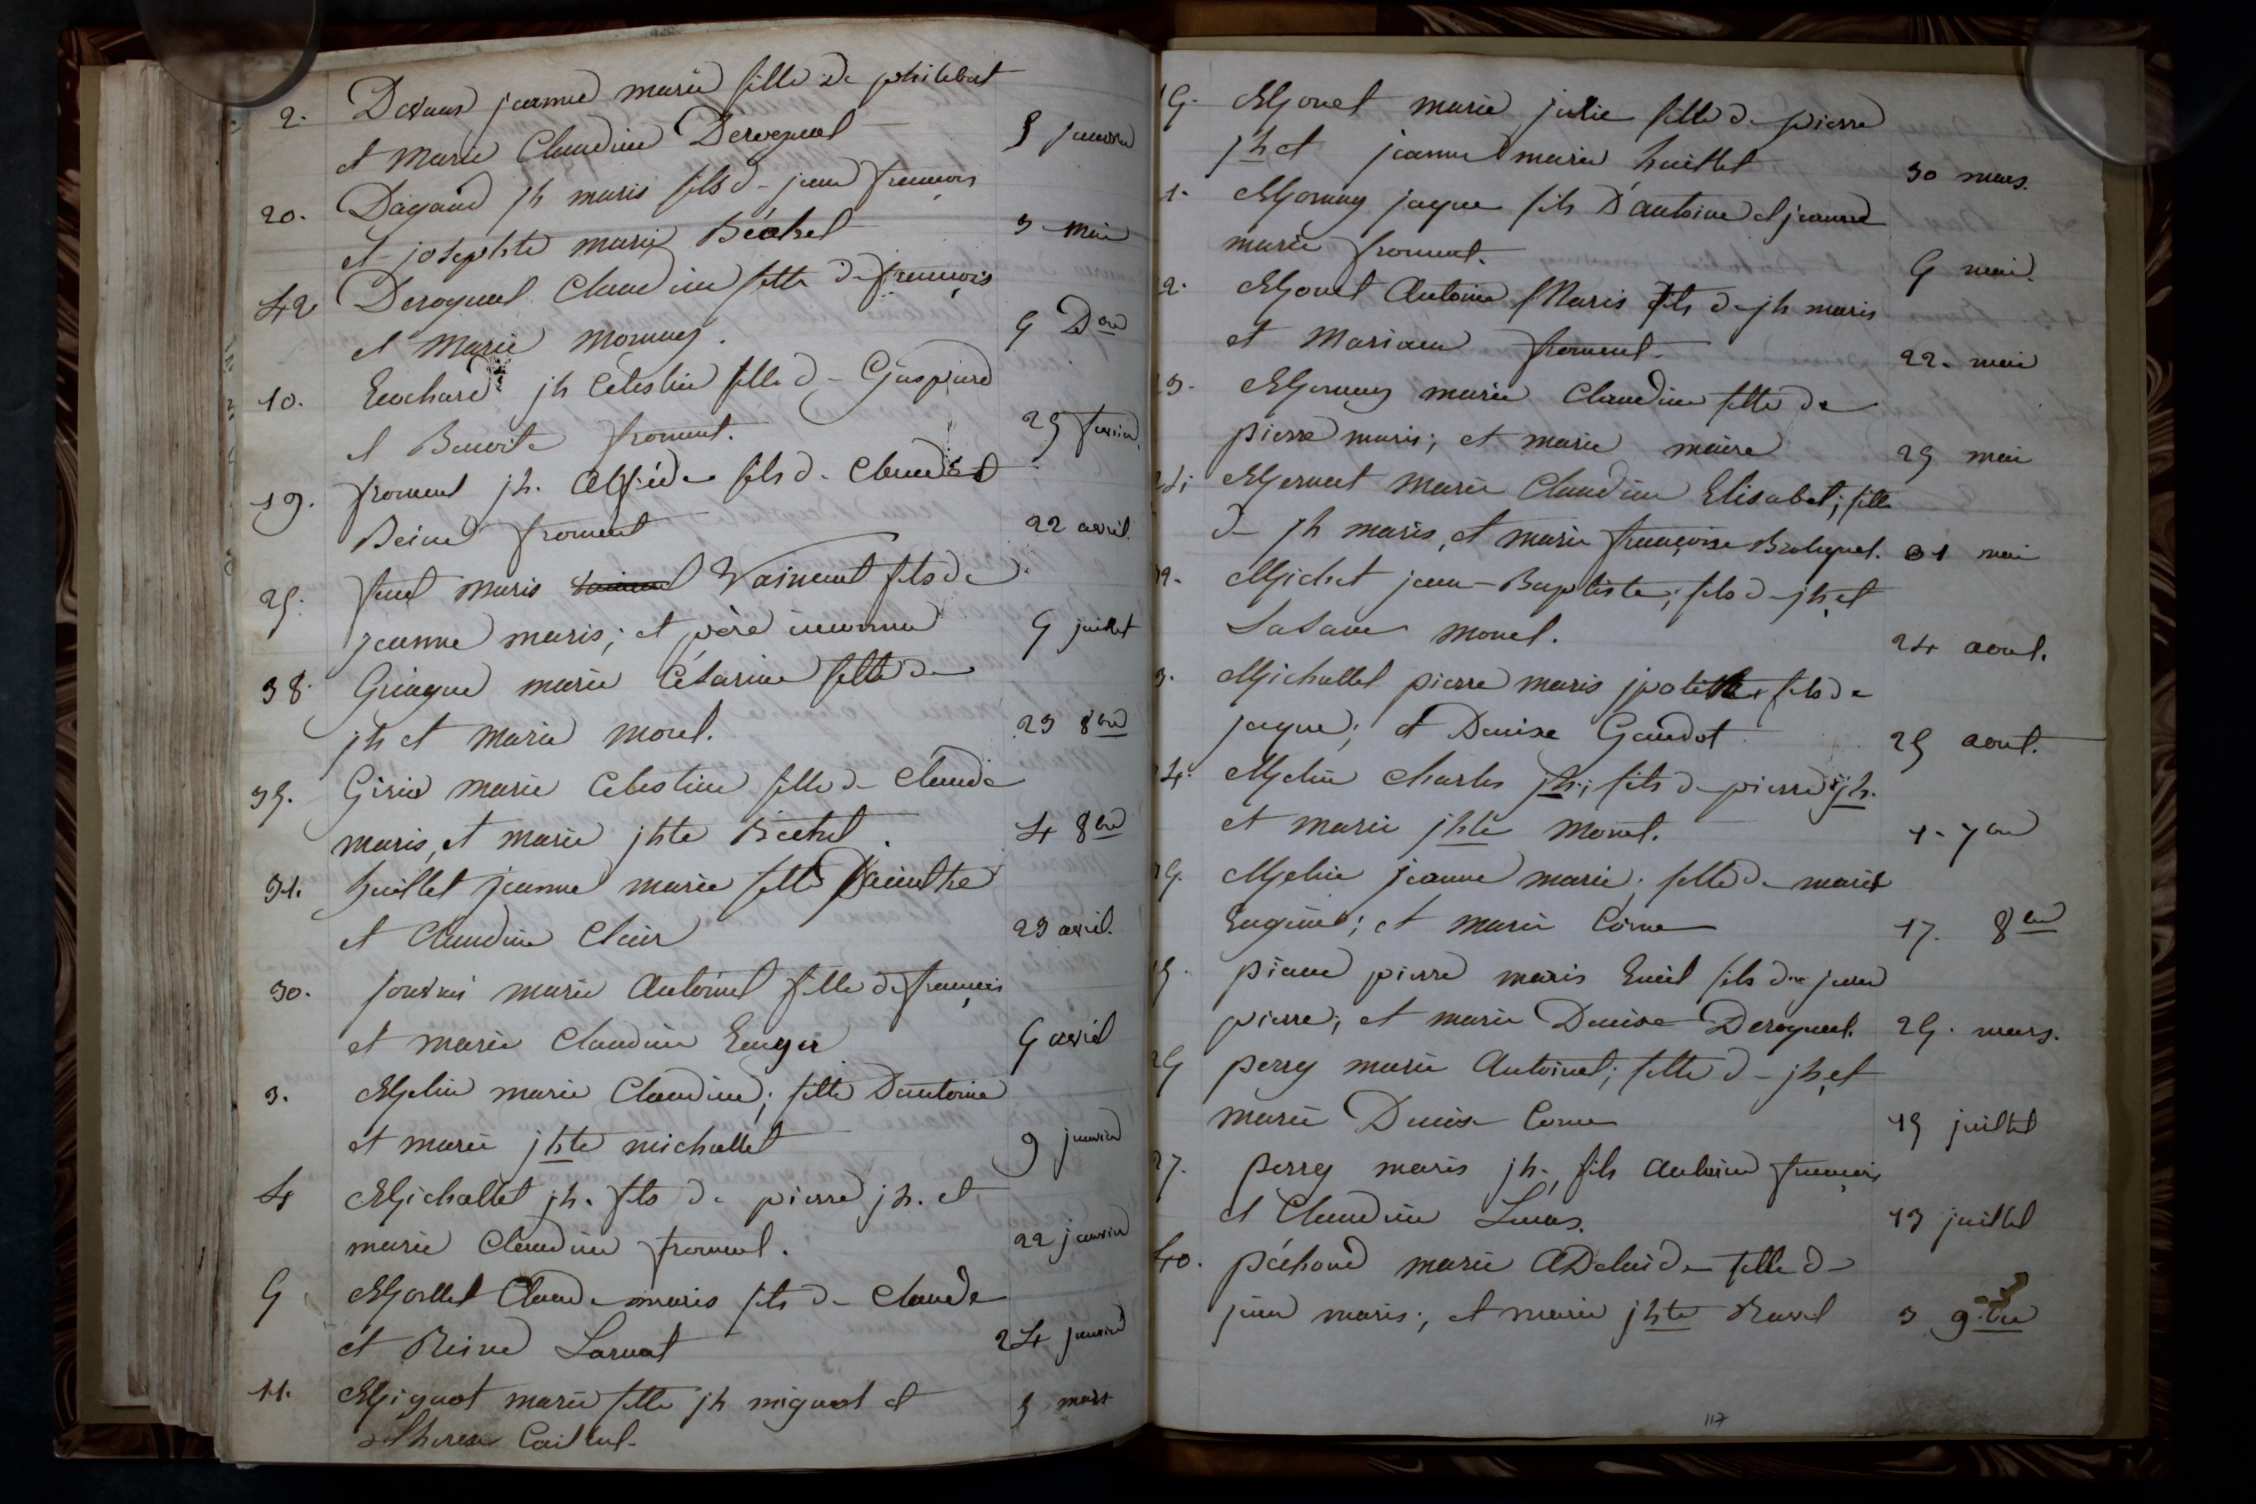 2. Devaux jeanne marie fille de philibert
et Marie Claudine Deroquel
5 janvier
20. Dagaud jh maris fils de jean françois
et josephte marie Béatrel
3 mai
42 Deroquel Claudine fille de françois
et Marie mornay.
9 Dbre
10. jh Celestin fille de Gaspard
et Benoite froment.
25 fevrier
19. froment jh. Alfréde fils de Claude et
Reine froment
22 avril.
25. maris Vainant fils de
jeanne maris; et père inconnu
9 juillet
38. Griague marie Césarine fille de
jh et marie morel.
23 8bre
35. Girin marie Celestine fille de Claude
maris, et marie jhte Béatrel.
4 8bre
31. huillet jeanne marie fille
et Claudine Clair
23 avril.
30. marie Antoinet fille de françois
et marie Claudine
9 avril
3. Melin marie Claudine; fille Dantoine
et marie jhte michallet
9 janvier
4 Michallet jh. fils de pierre jh. et
marie Claudine froment.
22 janvier
9 Morllet Claude maris fils de Claude
et Reine Larnat
24 janvier
11. Mignot marie fille jh mignot et
therese
5 mars
Monet marie julie fille de pierre
jh et jeanne marie huillet
30 mars.
1. Mornay jaque fils D'antoine et jeanne
marie froment.
9 mai.
2. Monet Antoine Maris fils de jh maris
et Mariann froment.
22. mai
23. Mornay marie Claudine fille de
pierre maris; et marie maire
25 mai
marie Claudine Elisabet; fille
de jh maris, et marie françoise
31 mai
Michet jean-Baptiste; fils de jh, et
Susane monet.
24 aout.
3. Michallet pierre maris fils de
jaque; et Denise Gaudot
25 aout.
34. Melin Charles jh; fils de pierre jh.
et marie jhte Monet.
1. 7bre
Melin jeanne marie; fille de maris
Eugène; et marie Come
17. 8bre
pierre maris Emil fils de jean
pierre; et marie Denise Deroquel.
29. mars.
perrey marie Antoinet; fille de jh, et
marie Denise Come
15 juillet
27. perrey maris jh., fils Antoine françois
et Claudine Lucas.
13 juillet
40. péchoud marie ADelaide fille de
jean maris; et marie jhte Ravel
3 9.bre
117